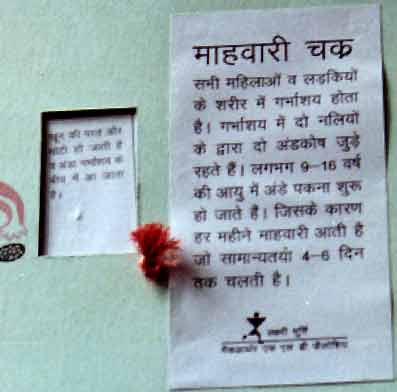 माहवारी चक्र
सभी महिलाओं व लड़कियों
के शरीर में गर्भाशय होता
है। गर्भाशय में दो नलियों
के द्वारा दो अंडकोष जुड़े
रहते हैं। लगभग 9-16 वर्ष
की आयु में अंडे पकना शुरू
हो जाते हैं। जिसके कारण
हर महीने माहवारी आती है
जो सामान्यतयाः 4-6 दिन
तक चलती है।
खून की परत और
मोटी हो जाती है
व अंडा गर्भाशय के
बीच में आ जाता
है।